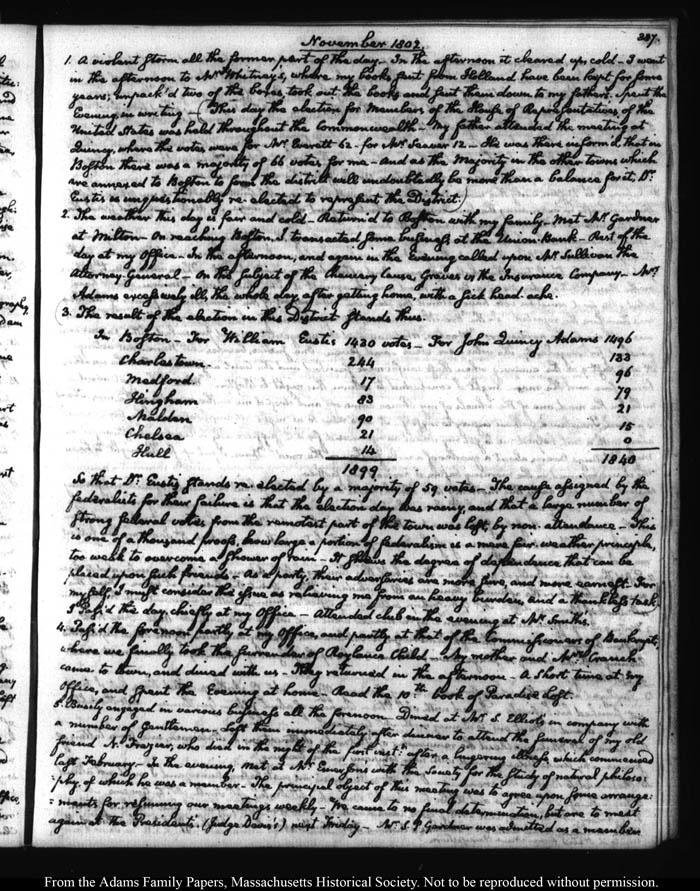 November 1802.
237.
1. A violent storm all the former part of the day. In the afternoon it cleared up, cold - I went
in the afternoon to Mr Whitney's, where my books sent from Holland have been kept for some
years; unpack'd two of the boxes, took out the books and sent them down to my father's. Spent the
Evening in writing - (This day the election for Members of the House of Representatives of the
United States was held throughout the Commonwealth - My father attended the meeting at
Quincy, where the votes were for Mr. Everett 62 - for Mr. Seaver 12 - He was there inform'd that in
Boston there was a majority of 66 votes for me - And as the Majority in the other towns which
are annexed to Boston to form the district will undoubtedly be more than a balance for it, Dr.
Eustis is unquestionably re-elected to represent the District.)
2. The weather this day is fair and cold - Return'd to Boston with my family. Met Mr. Gardner
at Milton. On reaching Boston I transacted some business at the Union Bank - Rest of the
day at my Office. In the afternoon, and again in the Evening called upon Mr. Sullivan the
Attorney General - On the subject of the chancery cause, Graves vs the Insurance Company. Mrs.
Adams excessively ill, the whole day, after getting home, with a sick head-ache.
3. The result of the election in this District stands thus.
In Boston - For William Eustis 1430 votes - For John Quincy Adams 1496
Charlestown 244 133
Medford 17 96
Hingham 83 79
Malden 90 21
Chelsea 21 15
Hull 14 0
1899 1840
So that Dr. Eustis stands re-elected by a majority of 59 votes - The cause assigned by the
federalists for their failure is that the election day was rainy, and that a large number of
strong federal votes from the remotest part of the town was lost, by non-attendance - This
is one of a thousand proofs, how large a portion of federalism is a mere fair-weather principle,
too weak to overcome a shower of rain - It shews the degree of dependence that can be
placed upon such friends - As a party, their adversaries are more sure, and more earnest. For
myself, I must consider the issue as relieving me from an heavy burden, and a thankless task
I pass'd the day, chiefly at my Office - Attended club in the evening at Mr. Smith's.
4. Pass'd the forenoon partly at my Office, and partly at that of the Commissioners of Bankrupt,
where we finally took the surrender of Child - My mother and Mrs. Cranch
came to town, and dined with us. They returned in the afternoon - A short time at my
Office, and spent the Evening at home. Read the 10th. book of Paradise lost.
5. Busily engaged in various business all the forenoon. Dined at Mr. S. Elliot's in company with
a number of Gentlemen. Left them immediately after dinner to attend the funeral of my old
friend N. Frazier, who died in the night of the first inst: after a lingering illness which commenced
last February - In the evening, met at Mr. Emerson's with the Society for the study of natural philoso:
:phy, of which he was a member - The principal object of this meeting was to agree upon some arrange:
:ments for resuming our meetings weekly - We came to no final determination, but are to meet
again at the Presidents. (Judge Davis's) next Friday - Mr. S. P. Gardner was admitted as a member
From the Adams Family Papers, Massachusetts Historical Society. Not to be reproduced without permission.